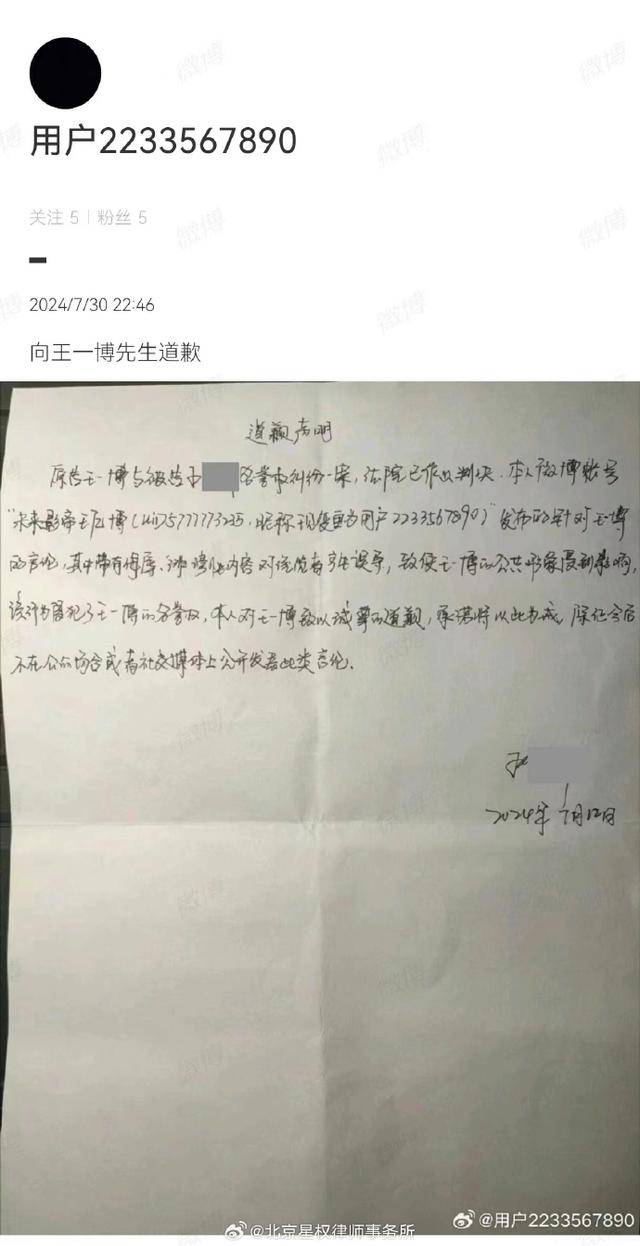 用户2233567890
关注 5 | 粉丝 5
2024/7/30 22:46
向王一博先生道歉
道歉声明
原告王一博与被告 名誉权纠纷一案，法院已作出判决，本人微博账号
“未来影帝王一博（uid5777773235，昵称现变更为用户2233567890）”发布的针对王一博
的言论，其中带有侮辱、诽谤性内容对阅览者产生误导，致使王一博的公共形象受到影响，
该行为冒犯了王一博的名誉权，本人对王一博致以诚挚的道歉，承诺将以此为戒，保证今后
不在公众场合或者社交媒体上公开发表此类言论。
2024年7月12日
@北京星权律师事务所
@用户2233567890
微博